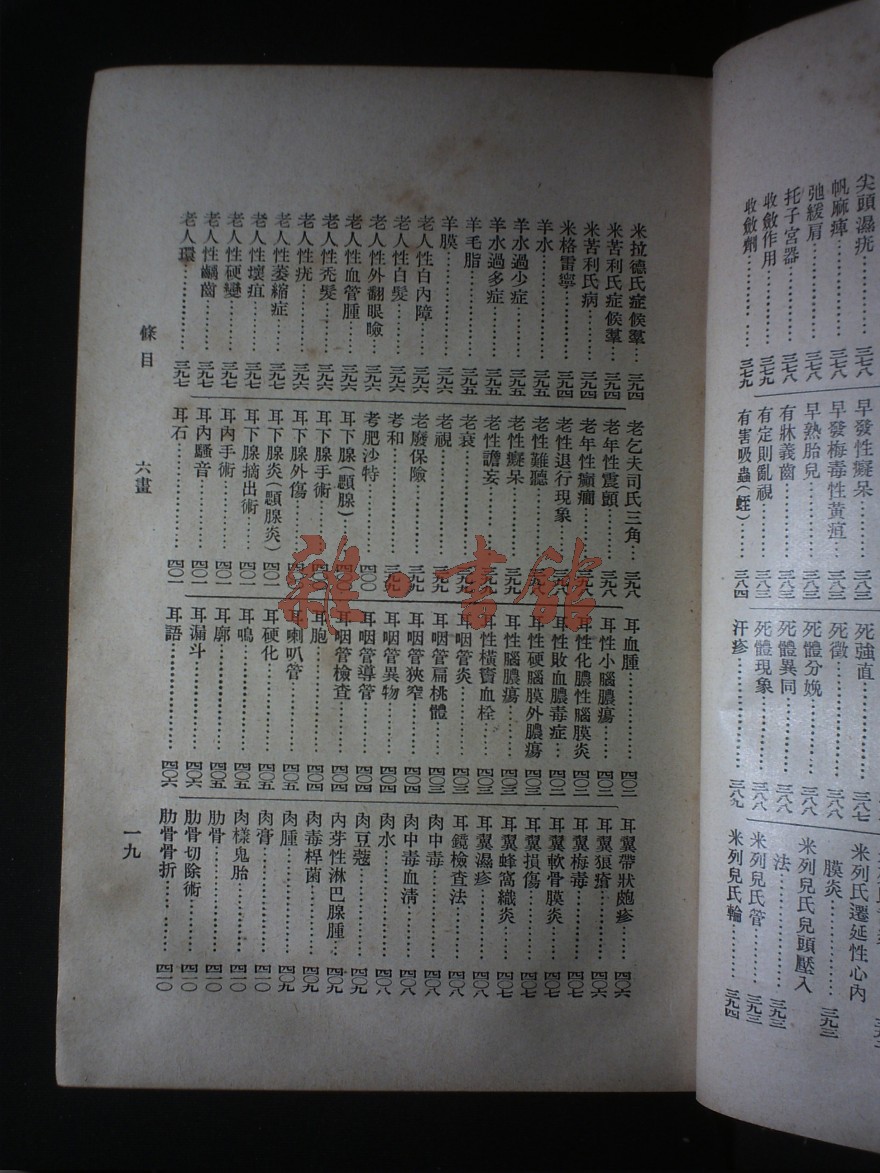 尖頭濕疣……三七八
帆麻痺……三七八
弛緩肩……三七八
托子宮器……三七八
收斂作用……三七九
收斂劑……三七九
早發性癡呆……三八三
早發梅毒性黃疸……三八三
早熟胎兒……三八三
有牀義齒……三八三
有定則亂視……三八三
有害吸蟲(蛭)……三八四
死強直……三八七
死徵……三八八
死體分娩……三八八
死體異同……三八八
死體現象……三八八
汗疹……三八九
米列氏遷延性心內
膜炎……三九三
米列兒氏兒頭壓入
法……三九三
米列兒氏管……三九三
米列兒氏輪……三九四
米拉德氏症候羣……三九四
米苦利氏症候羣……三九四
米苦利氏病……三九四
米格雷寧……三九四
羊水……三九五
羊水過少症……三九五
羊水過多症……三九五
羊毛脂……三九五
羊膜……三九六
老人性白內障……三九六
老人性白髮……三九六
老人性外翻眼瞼……三九六
老人性血管腫……三九六
老人性禿髮……三九六
老人性疣……三九六
老人性萎縮症……三九七
老人性壞疽……三九七
老人性硬變……三九七
老人性齲齒……三九七
老人環……三九七
老乞夫司氏三角……三九八
老年性震顫……三九八
老年性癲癇……三九八
老性退行現象……三九八
老性難聽……三九八
老性癡呆……三九九
老性譫妄……三九九
老衰……三九九
老視……三九九
老廢保險……三九九
考和……三九九
考肥沙特……四〇〇
耳下腺(顋腺)……四〇〇
耳下腺手術……四〇〇
耳下腺外傷……四〇〇
耳下腺炎(顋腺炎)……四〇一
耳下腺摘出術……四〇一
耳內手術……四〇一
耳內騷音……四〇一
耳石……四〇一
耳血腫……四〇二
耳性小腦膿瘍……四〇二
耳性化膿性腦膜炎……四〇二
耳性敗血膿毒症……四〇二
耳性硬腦膜外膿瘍……四〇三
耳性腦膿瘍……四〇三
耳性橫竇血栓……四〇三
耳咽管炎……四〇三
耳咽管扁桃體……四〇三
耳咽管狹窄……四〇四
耳咽管異物……四〇四
耳咽管導管……四〇四
耳咽管檢查……四〇四
耳胞……四〇四
耳喇叭管……四〇五
耳硬化……四〇五
耳鳴……四〇五
耳廓……四〇五
耳漏斗……四〇六
耳語……四〇六
耳翼帶狀皰疹……四〇六
耳翼狼瘡……四〇六
耳翼梅毒……四〇七
耳翼軟骨膜炎……四〇七
耳翼損傷……四〇七
耳翼蜂窩織炎……四〇七
耳翼濕疹……四〇八
耳鏡檢查法……四〇八
肉中毒……四〇八
肉中毒血清……四〇八
肉水……四〇八
肉豆蔻……四〇九
肉芽性淋巴腺腫……四〇九
肉毒桿菌……四〇九
肉腫……四〇九
肉膏……四一〇
肉樣鬼胎……四一〇
肋骨……四一〇
肋骨切除術……四一〇
肋骨骨折……四一〇
條目 六畫 一九
雜书館